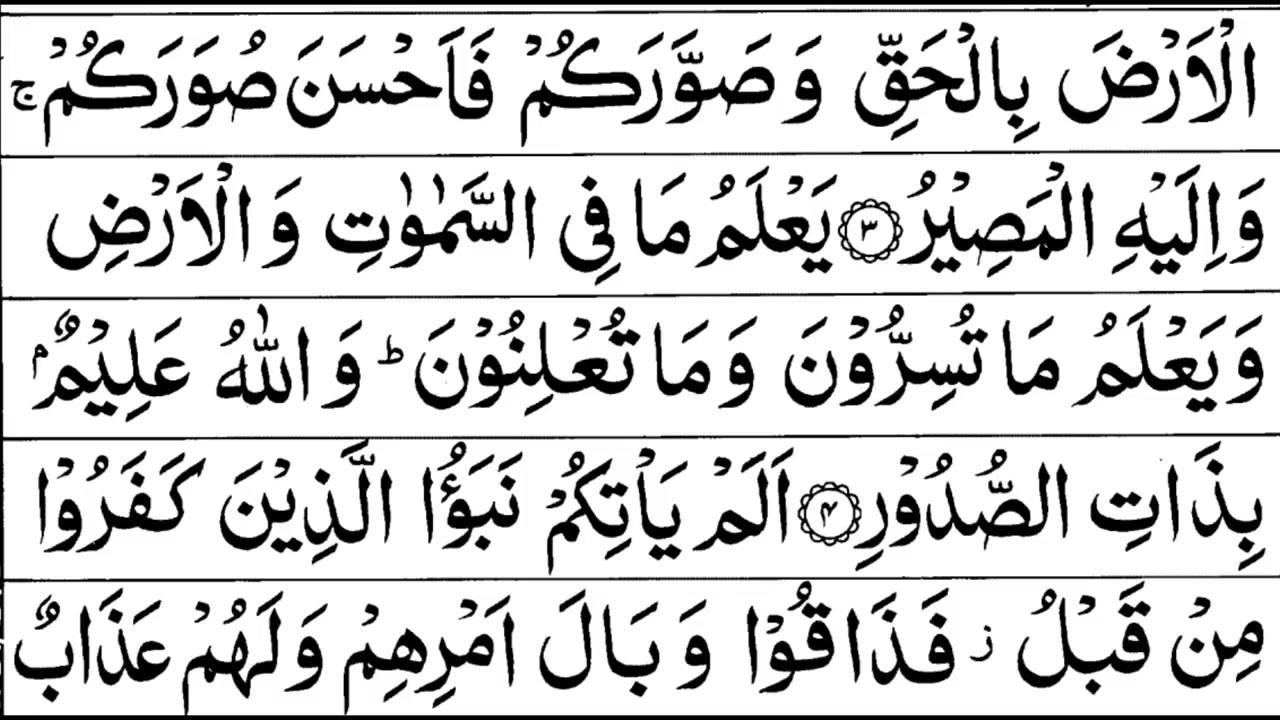 الْاَرْضَ بِالْحَقِّ وَ صَوَّرَكُمْ فَاَحْسَنَ صُوَرَكُمْ ۚ
وَ اِلَیْهِ الْمَصِیْرُ ۝۳ یَعْلَمُ مَا فِی السَّمٰوٰتِ وَ الْاَرْضِ
وَ یَعْلَمُ مَا تُسِرُّوْنَ وَ مَا تُعْلِنُوْنَ ؕ وَ اللّٰهُ عَلِیْمٌۢ
بِذَاتِ الصُّدُوْرِ ۝۴ اَلَمْ یَاْتِكُمْ نَبَؤُا الَّذِیْنَ كَفَرُوْا
مِنْ قَبْلُ ؗ فَذَاقُوْا وَ بَالَ اَمْرِهِمْ وَ لَهُمْ عَذَابٌ